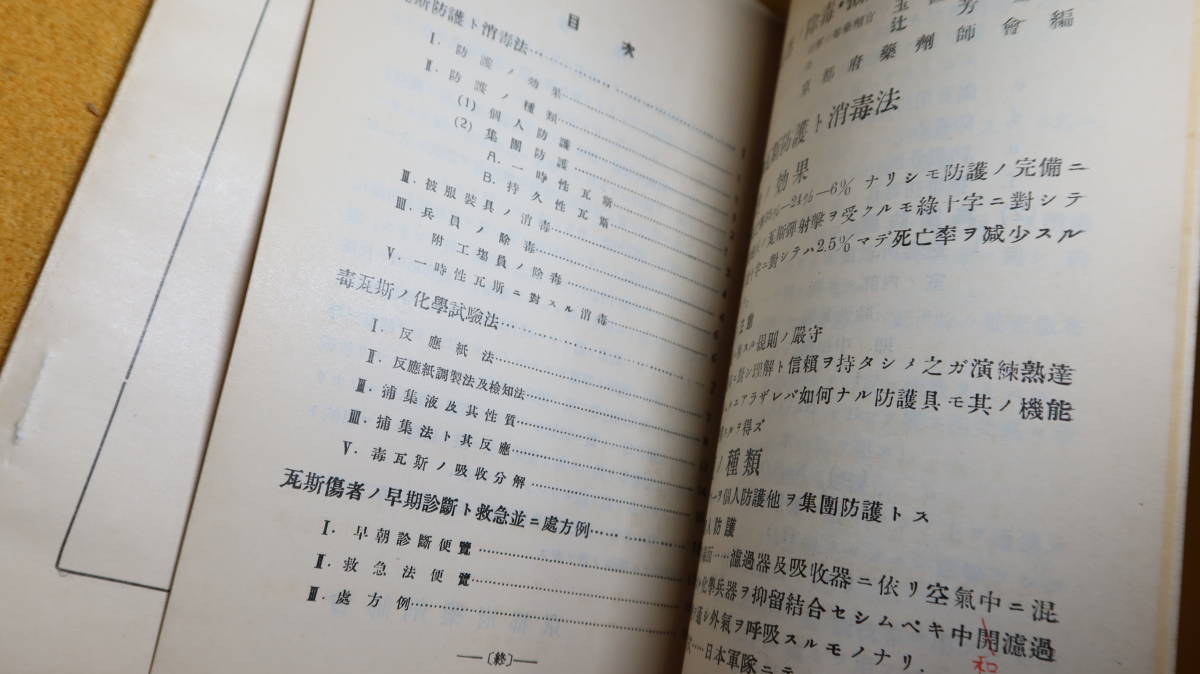 目次
瓦斯防護ト消毒法
I. 防護ノ効果
II. 防護ノ種類
(1) 個人防護
(2) 集團防護
A. 一時性瓦斯
B. 持久性瓦斯
III. 被服裝具ノ消毒
IIII. 兵員ノ除毒
附工場員ノ除毒
V. 一時性瓦斯ニ對スル消毒
毒瓦斯ノ化學試驗法
I. 反應紙法
II. 反應紙調製法及檢知法
III. 捕集液及其性質
IIII. 捕集法ト其反應
V. 毒瓦斯ノ吸收分解
瓦斯傷者ノ早期診斷ト救急並ニ處方例
I. 早朝診斷便覽
II. 救急法便覽
III. 處方例
〔終〕
ノ除毒
辻芳
京都府藥劑師會編
斯防護ト消毒法
ノ効果
—24%—6% ナリシモ防護ノ完備ニ
ノ瓦斯彈射擊ヲ受クルモ綠十字ニ對シテ
十字ニ對シテハ2.5%マデ死亡率ヲ減少スル
スル規則ノ嚴守
シ理解ト信賴ヲ持タシメ之ガ演練熟達
ニアラザレバ如何ナル防護具モ其ノ機能
スルヲ得ズ
ノ種類
ヲ個人防護他ヲ集團防護トス
人防護
面……濾過器及吸收器ニ依リ空氣中ニ混
化學兵器ヲ抑留結合セシムベキ中開濾過
通シ外氣ヲ呼吸スルモノナリ.
和
……日本軍隊ニテ